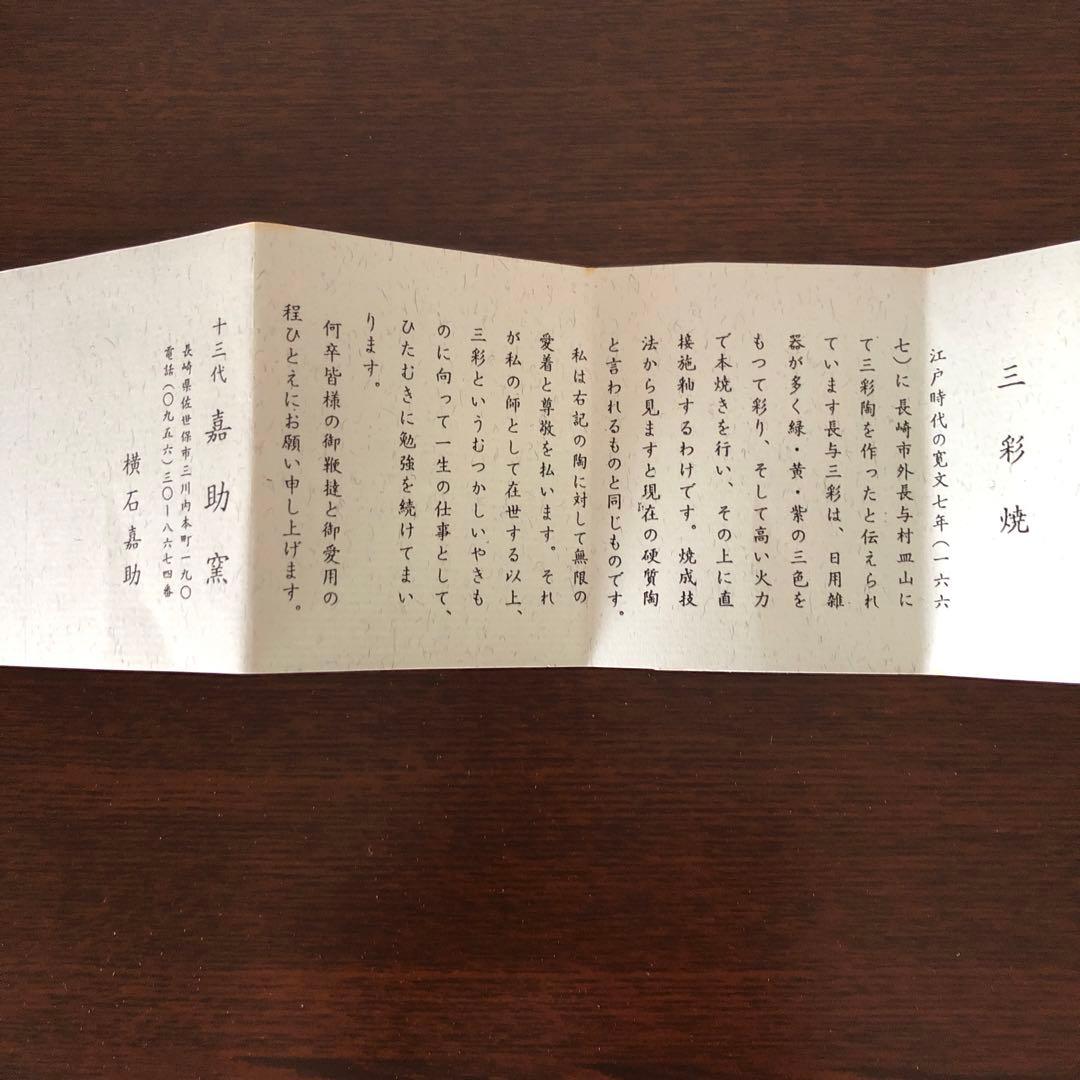 三彩焼
江戸時代の寛文七年（一六六
七）に長崎市外長与村皿山に
て三彩陶を作ったと伝えられ
ています長与三彩は、日用雑
器が多く緑・黄・紫の三色を
もつて彩り、そして高い火力
で本焼きを行い、その上に直
接施釉するわけです。焼成技
法から見ますと現在の硬質陶
と言われるものと同じものです。
私は右記の陶に対して無限の
愛着と尊敬を払います。それ
が私の師として在世する以上、
三彩というむつかしいやきも
のに向って一生の仕事として、
ひたむきに勉強を続けてまい
ります。
何卒皆様の御鞭撻と御愛用の
程ひとえにお願い申し上げます。
十三代 嘉助窯
長崎県佐世保市三川内本町一九〇
電話（〇九五六）三〇ー八六七四番
横石嘉助